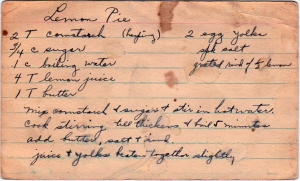 Lemon Pie
2 T cornstarch (heaping) 2 egg yolks
3/4 c sugar spk salt
1 c boiling water grated rind of 1/2 lemon
4 T lemon juice
1 T butter
Mix cornstarch & sugar & stir in hot water.
Cook stirring till thickens & boil 5 minutes
add butter, salt & rind.
juice & yolks beaten together slightly